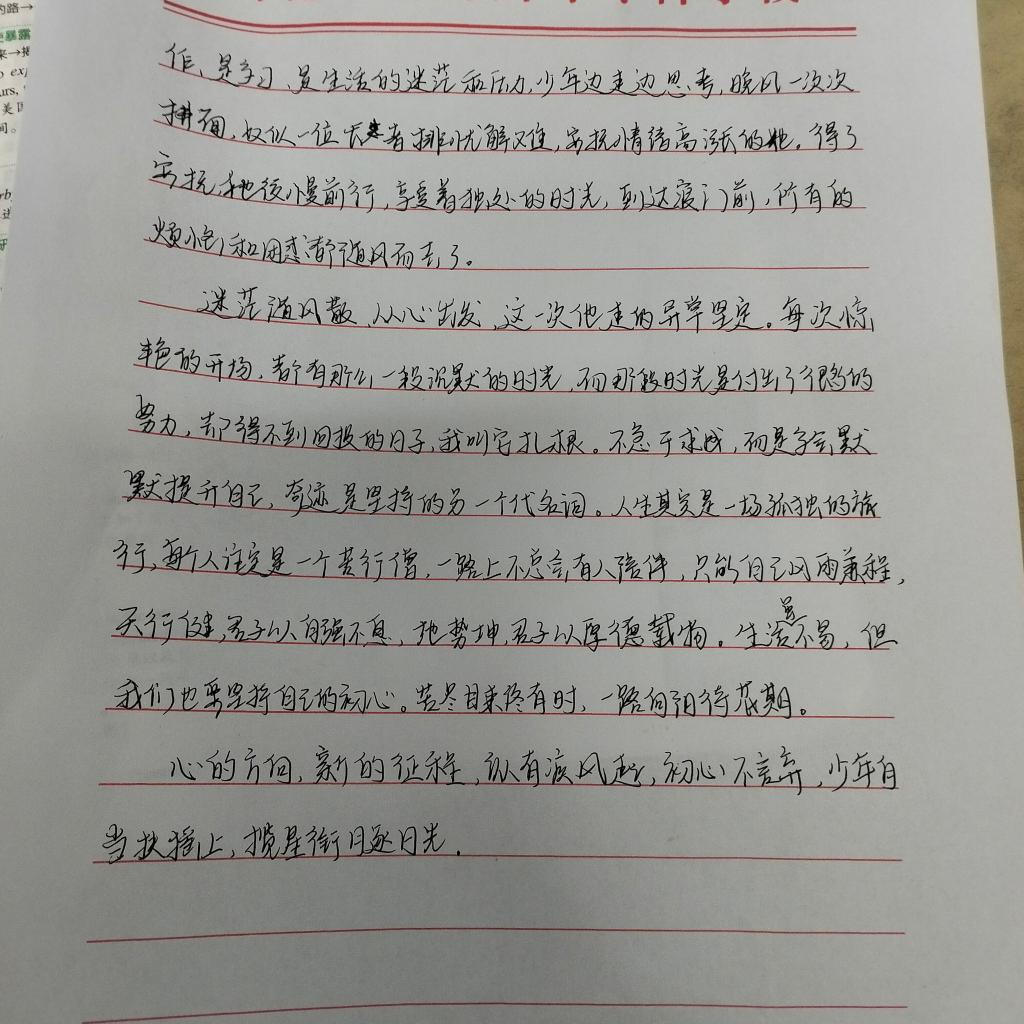 作、是学习、是生活的迷茫和压力,少年边走边思考,晚风一次次
拂面,好似一位长者排忧解难,安抚情绪高涨的他。得了
安抚他徐慢前行,享受着独处的时光,到达寝门前,所有的
烦恼和困惑都随风而去了。
迷茫随风散,从心出发,这一次他走的异常坚定。每次惊
艳的开场,都有那么一段沉默的时光,而那段时光是付出了很多的
努力,却得不到回报的日子,我叫它扎根。不急于求成,而是学会默
默提升自己,奇迹是坚持的另一个代名词。人生其实是一场孤独的旅
行,每个人注定是一个苦行僧,一路上不总会有人陪伴,只能自己风雨兼程,
天行健,君子以自强不息,地势坤,君子以厚德载物。生活虽不易,但
我们也要坚持自己的初心。苦尽甘来终有时,一路向阳待花期。
心的方向,新的征程,纵有疾风起,初心不言弃,少年自
当扶摇上,揽星衔月逐日光.
来→
美国
间。